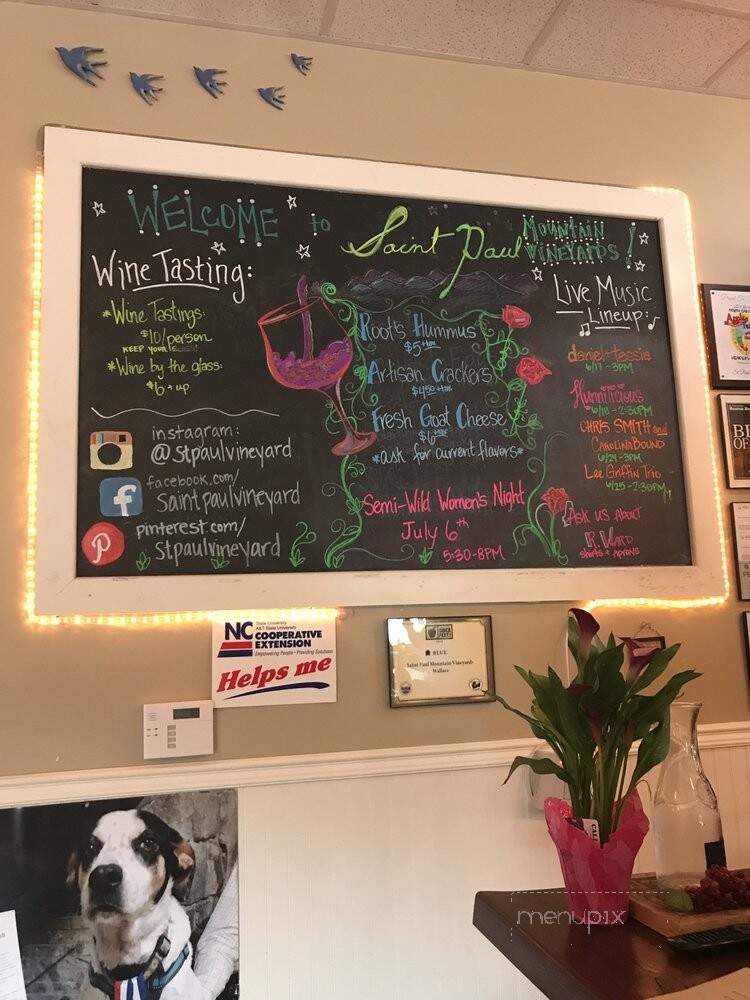 WELCOME to Saint Paul MOUNTAIN VINEYARDS!
Wine Tasting:
*Wine Tastings:
$10/person
KEEP YOUR
*Wine by the glass:
$6 + up
instagram:
@stpaulvineyard
facebook.com/
saintpaulvineyard
pinterest.com/
stpaulvineyard
Root's Hummus
$5 +tax
Artisan Crackers
$4.50 +tax
Fresh Goat Cheese
$6 +tax
*ask for current flavors*
Semi-Wild Women's Night
July 6th
5:30-8PM
Live Music
Lineup:
daniel+tessie
6/17 -3PM
Hunnilicious
6/18 -2:30PM
CHRIS SMITH and
CAROLINA BOUND
6/24 -3PM
Lee Griffin Trio
6/25 -2:30PM
ASK US ABOUT
R. WARD
shirts + aprons
NC
State University
A&T State University
COOPERATIVE
EXTENSION
Empowering People • Providing Solutions
Helps me
BLUE
Saint Paul Mountain Vineyards
Wallace
CALL
menupix